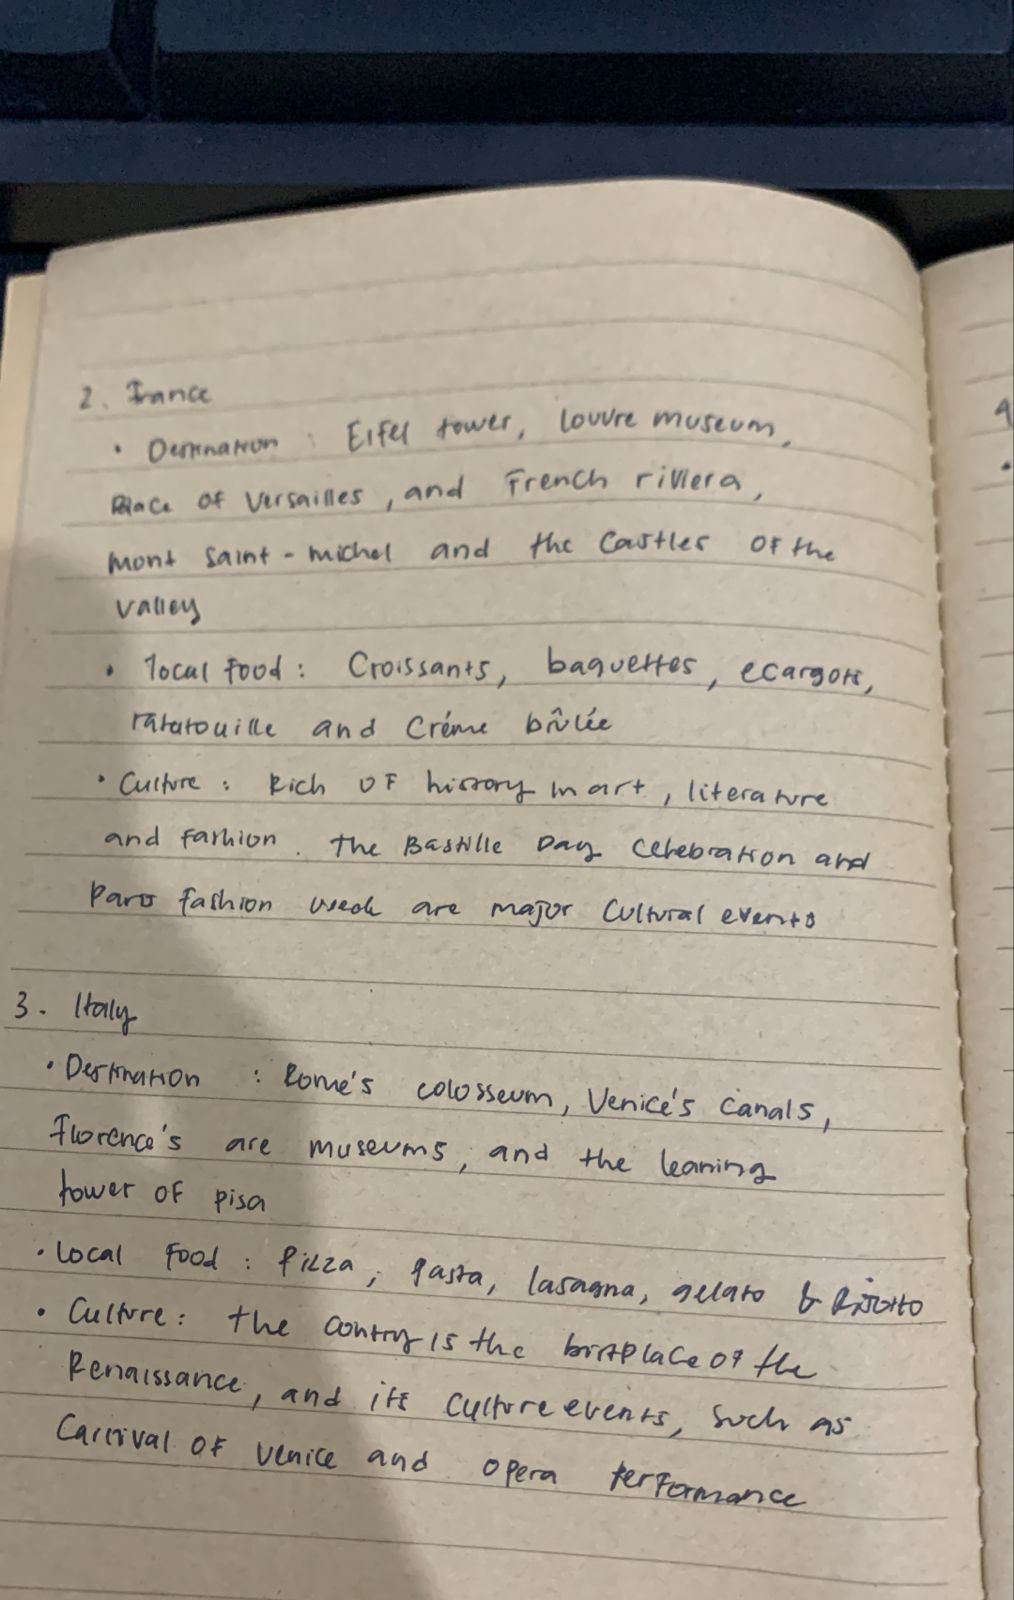 2. France
• Destination : Eifel tower, louvre museum,
Place of Versailles, and French riviera,
Mont Saint-michel and the Castles of the
valley
• local food : Croissants, baguettes, ecargots,
ratatouille and Créme brûlée
• Culture : Rich of history in art, literature
and fashion. The Bastille Day Celebration and
Paris fashion week are major Cultural events
3. Italy
• Destination : Rome's colosseum, Venice's canals,
Florence's are museums, and the leaning
tower of pisa
• Local Food : Pizza, pasta, lasagna, gelato & Risotto
• Culture : the contry is the birtplace of the
Renaissance, and its Culture events, such as
Carnival of venice and opera performance